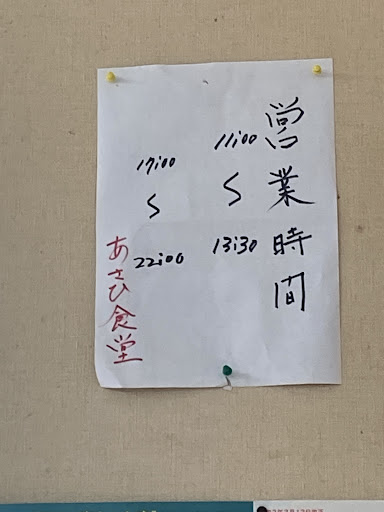 営業時間
11:00
〜
13:30
17:00
〜
22:00
あさひ食堂